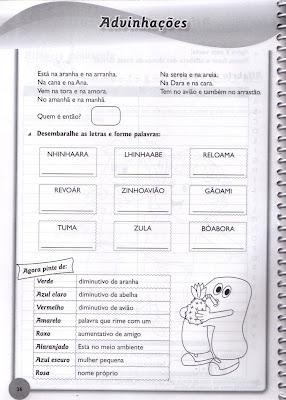 Advinhações
Está na aranha e na arranha.
Na cana e na Ana.
Vem na tora e na amora.
No amanhã e na manhã.
Na sereia e na areia.
Na Dara e na cara.
Tem no avião e também no arrastão.
Quem é então?
Desembaralhe as letras e forme palavras:
NHINHAARA LHINHAABE RELOAMA
REVOAR ZINHOAVIÃO GÃOAMI
TUMA ZULA BÓABORA
Agora pinte de:
Verde diminutivo de aranha
Azul claro diminutivo de abelha
Vermelho diminutivo de avião
Amarelo palavra que rime com um
Roxo aumentativo de amigo
Alaranjado Esta no meio ambiente
Azul escuro mulher pequena
Rosa nome próprio
36